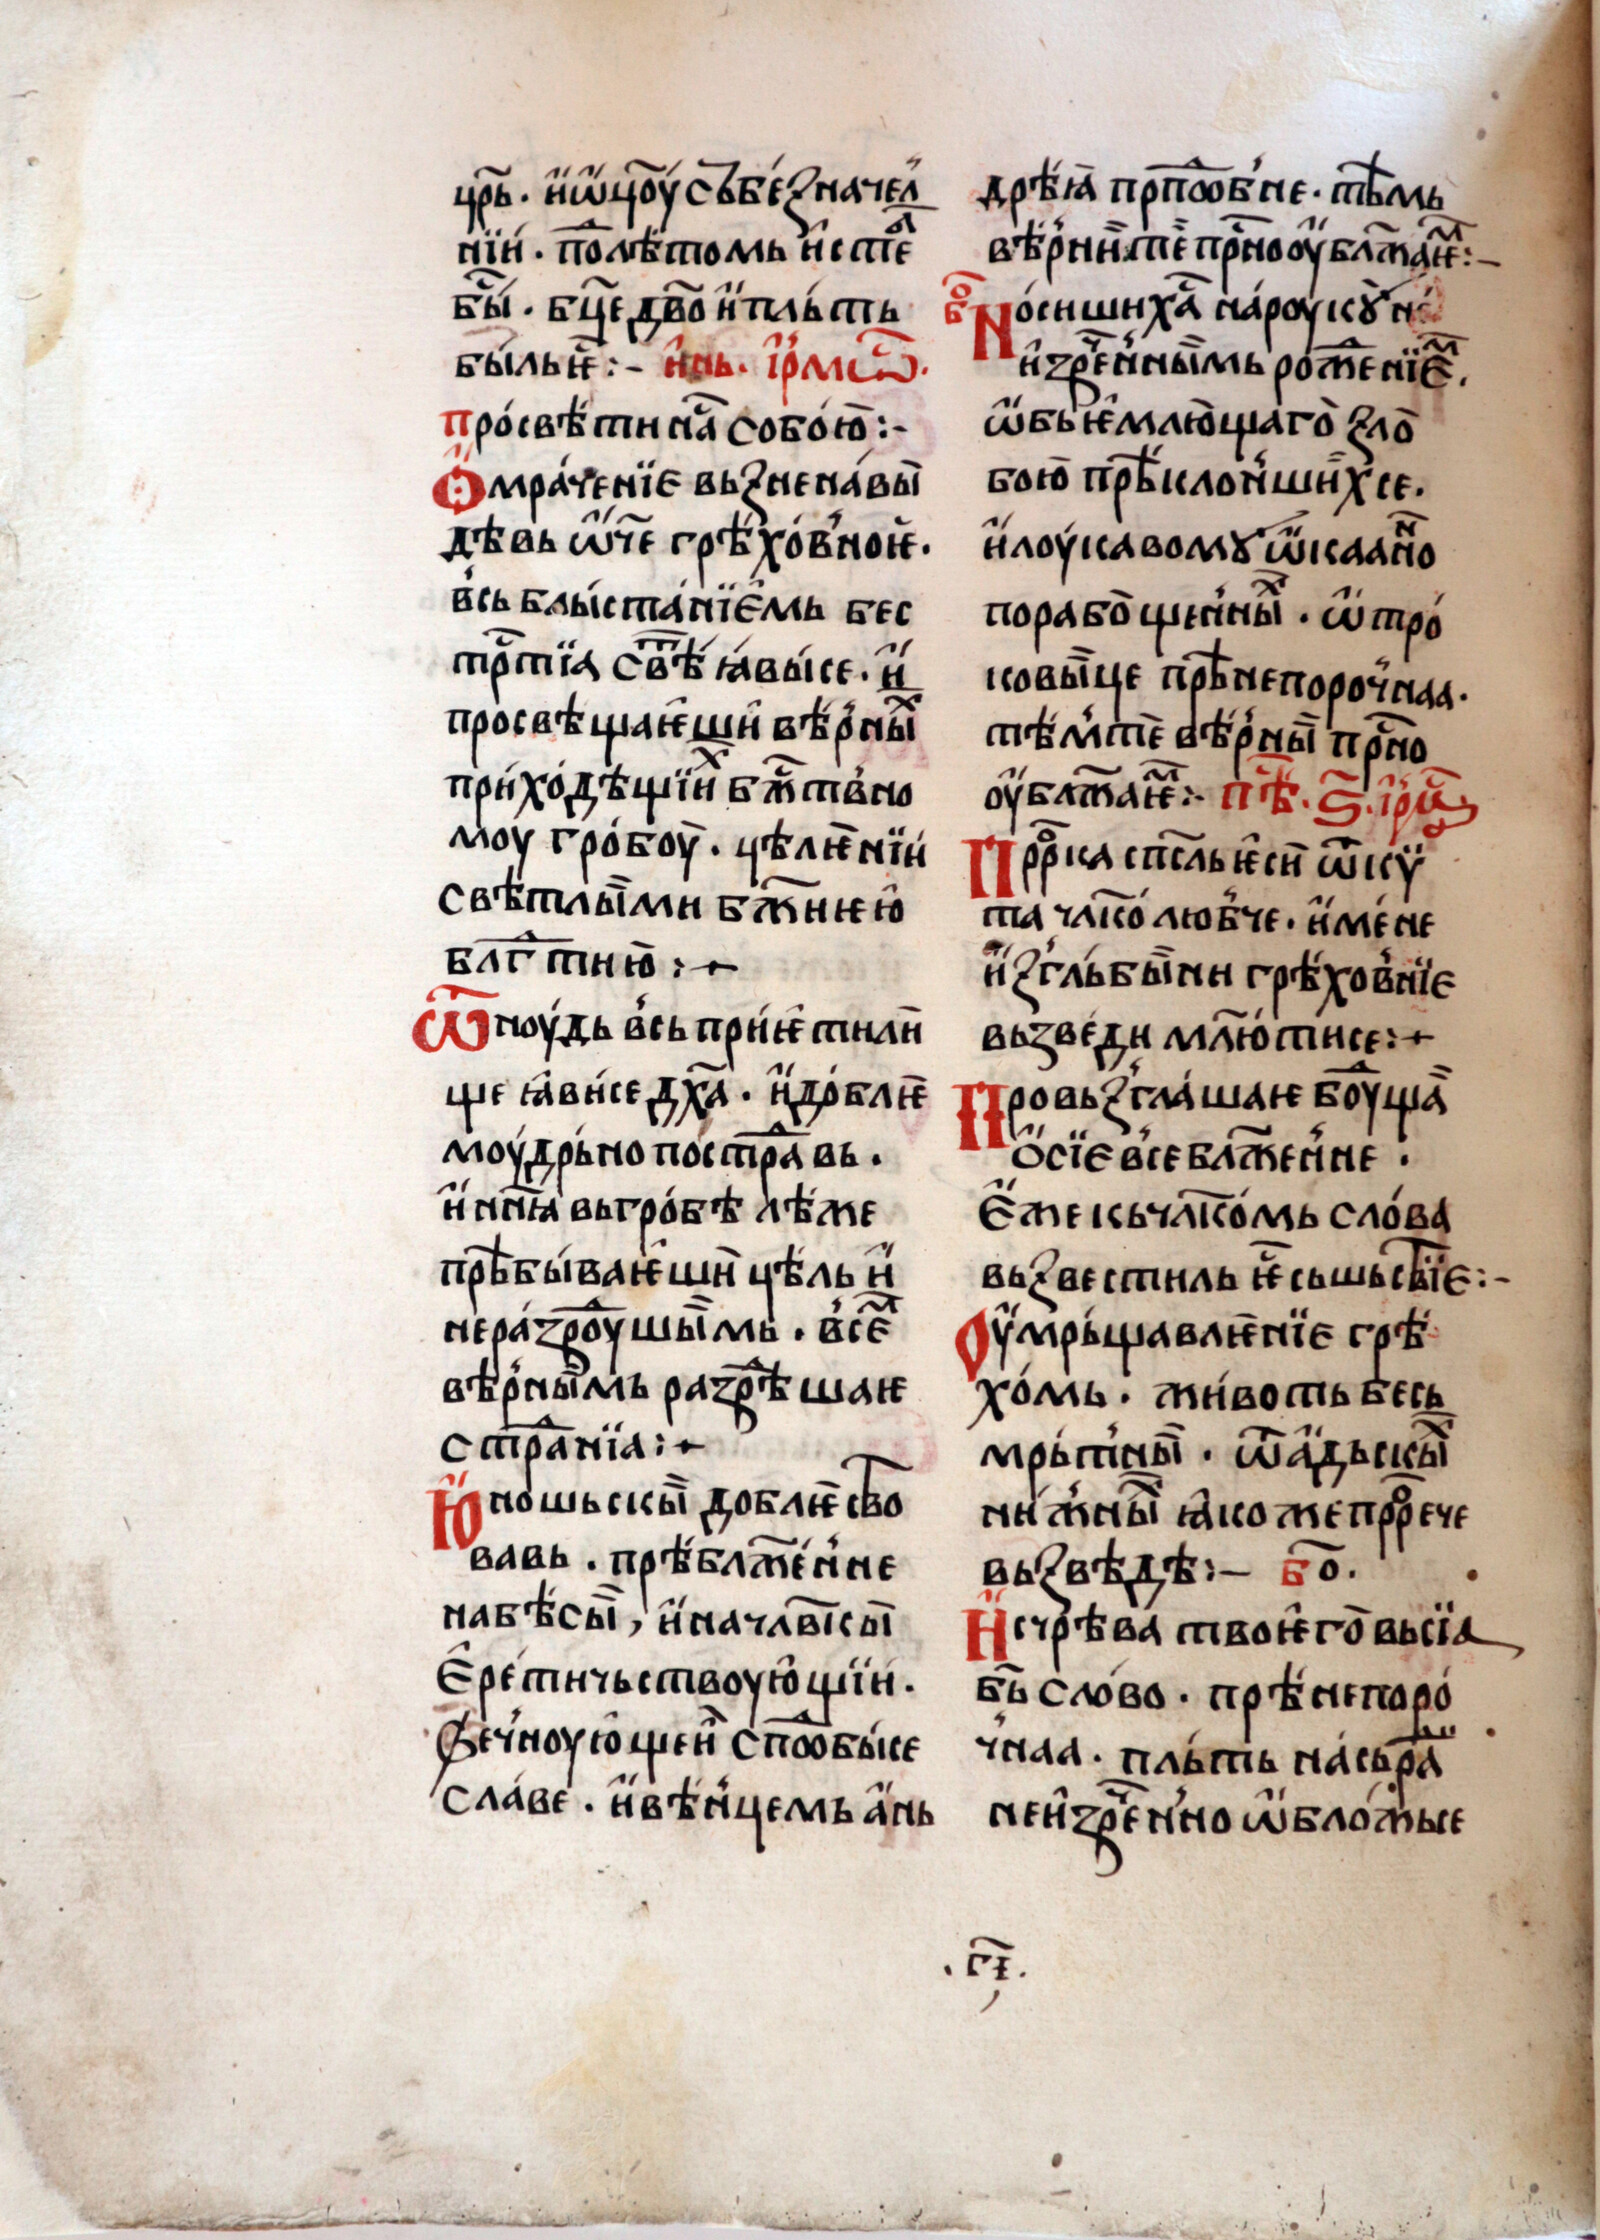 цр҃ь. и҆ ѿц҃оу съ беꙁначел
нїи. по лѣтомь и҆стѣ
бы. бц҃е дв҃о и҆ пльть
быльѥ:- и҆нь. і҆рмѡⷭ.
просвѣти на҃ собою:-
Ѻмраченїе вьꙁненавы
дѣвь ѡ҆ч҃е грѣховноѥ.
всь блыстанїѥмь бес
трⷭтїа свѣ꙯ ꙗвысе. и҆
просвѣщаѥши вѣрныⷯ
приходѣщїиⷯ бж҃твно
моу гробоу. цѣлѥнїи
свѣтлыми бж҃иѥю
блг҃тию:+
Ѿноудь всь приѥтили
ще ꙗвисе дх҃а. и҆ доблѥ
моудрьно пострⷣавь.
и҆ нн҃ꙗ вь гробѣ лѣже
прѣбываѥши цѣль и҆
нераꙁроушымь. всеⷨ
вѣрнымь раꙁрѣшаѥ
стрⷣанїа:+
Юношьскы доблѥство
вавь. прѣблаж҃енне
на бѣсы, и҆ на члв҃кы
е҆ретичьствоую҆щїи.
Ꙁечноую҆щеи сподⷣобысе
славе. и҆ вѣнцемь а҆нь
дрѣꙗ прпⷣобне. тѣмь
вѣрнии те прⷭно оу҆блаж҃аѥⷨ:-
бо҃
Носиши ха҃ на роукꙋ не
и҆ꙁреⷱнымь рож҃енїеⷨ.
ѡ҆бьѥмлющаго ꙁло
бою прѣклоншихсе.
и҆ лоукавомꙋ ѡ҆кааⷩно
порабощенныⷯ. ѡ҆ тро
ковыце прѣнепорочнаа.
тѣмте вѣрны прⷭно
оу҆блаж҃аѥⷨ:- пѣⷭ. ѕ҃. і҆рмⷭ
Пррⷪка спⷭль ѥси ѿ ки
та чл҃колюбче. и҆ мене
и҆ꙁ гльбыни грѣховнїе
вьꙁведи млютисе:+
Провьꙁглашаѥ боуⷣща
Ѻ҆сїе все блаж҃енне.
Е҆же кь чл҃комь слова
вьꙁвестиль ѥⷭ сьшьствїе:-
Оумрьщавлѥнїе грѣ
хомь. животь бесь
мрьтны. ѿ а҆дьскыⷯ
нижныⷯ ꙗкоже пррⷪече
вьꙁвѣдѣ:- бо҃.
Ис чрѣва твоѥго вьсїа
бь҃ слово. прѣнепоро
чнаа. пльть насьраⷨ
неиꙁреⷱнно ѡ҆бложьсе
.гі҃.